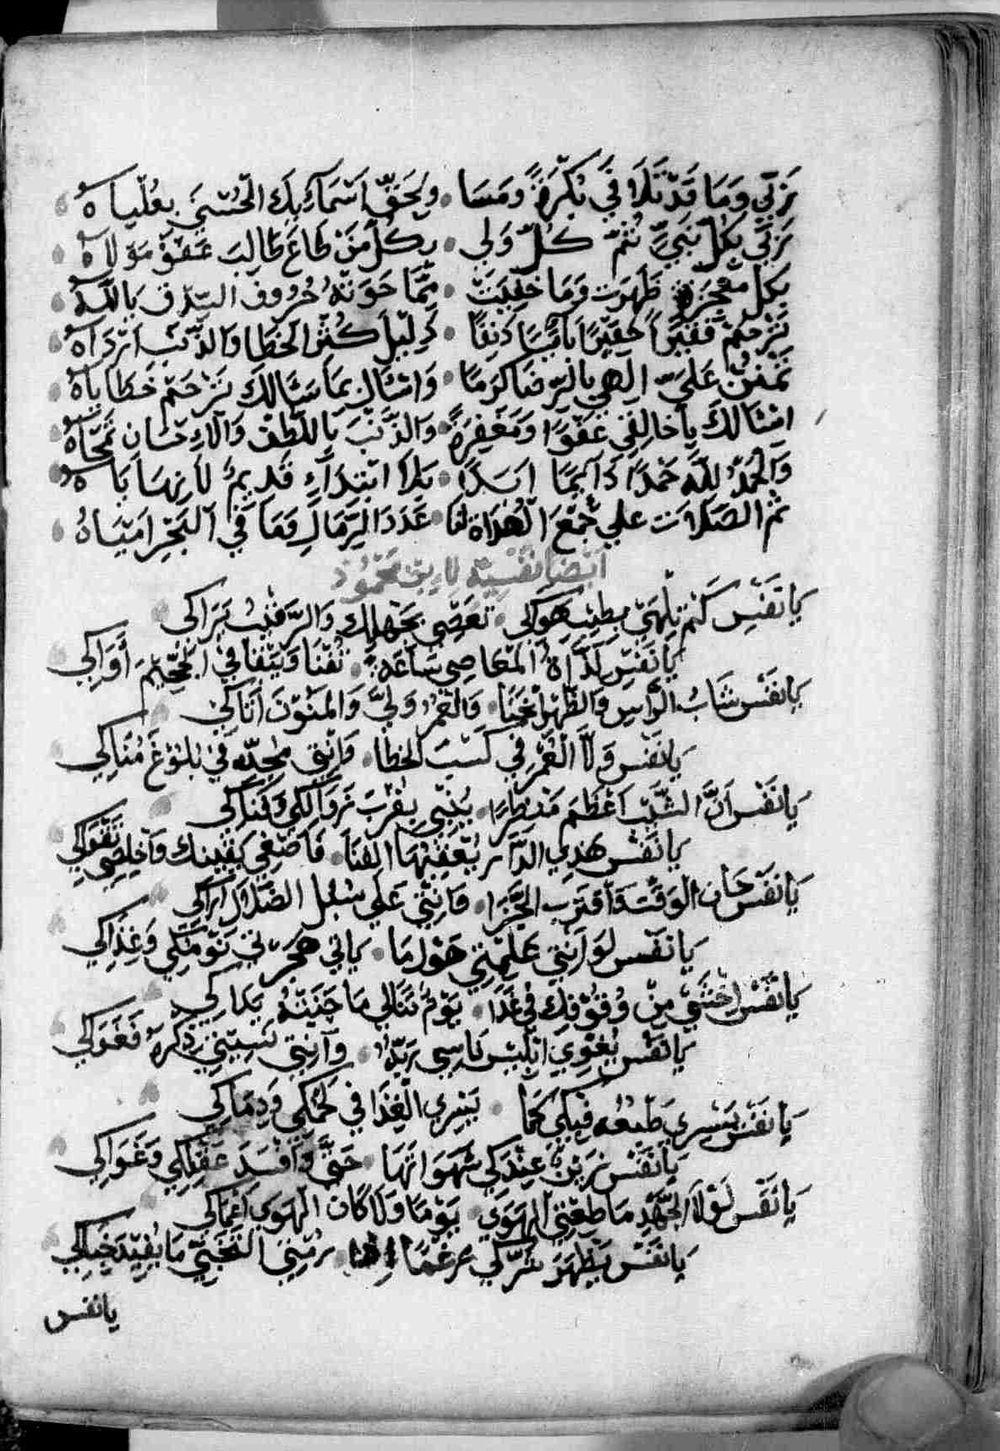 رَبِّي وَمَا قَدْ تَلَا فِي بُكْرَةٍ وَمَسَا وبِحَقِّ اَسْمَآءِكَ الحُسْنَى بِعُلْيَاهُ
رَبِّي بِكُلِّ نَبِيٍّ ثُمَّ كُلِّ وَلِي بِكُلِّ مَنْ طَاعَ طَالِبَ عَفْوَ مَوْلَاهُ
بِكُلِّ مُعْجِزَةٍ ظَهَرَت وَمَا خَفِيَتْ مِمَّا حَوَتْهُ حُرُوف السِّرِّ بَاللَّهُ
تَرْحَمْ فَقِيرًا حَقِيرًا دَنِفًا ذَلِيلَ كُثْرِ الخَطَا وَالذَّنْب اَرْدَاهُ
تَمْنُنْ عَلَيَّ الهي بِالرِّضَا كَرَمًا وَاسْئَال بِمَا سَئَالَكَ تَرْحَمْ خَطَايَاهُ
اسْئَالكَ يَا خَالِقِي عَفْوًا وَمَغْفِرَةً وَالذَّنْبَ بِاللُّطْفِ وَالاِحْسَان
وَالحَمْدُ لِلَّهِ حَمْدًا دَآئِمًا اَبَدًا بَلَا ابْتِدَآءٍ قَدِيمٌ لَا
ثم الصَّلَات علي جَمْعَ الهُدَاة لنا عَدَدَ الرِّمَالِ وَمَا فِي البَحْرِ امْيَاهُ
اَيْضًا نَفْسِيَّة لِابن مَحْمُود
يَا نَفْس كَمْ تِلْهَيْ بِطِيْب هَوَاكي تَعْصِي بِجَهْلِكِ وَالرَّقِيْبُ يَرَاكي
يَا نَفْس لَذَّاةُ المَعَاصِي سَاعَه تُفْنَا وَيَبْقَا فِي الجَّحِيْمِ
يَا نَفْس شَابُ الرَّأس وَالظَّهْر انْحَنَا وَالعُمْرُ وَلَّي وَالمَنُوْنَ اَتَاكي
يَا نَفْس وَلَّا العُمْر فِي كَسْبَ الخطا وَانْتِي مُجِدَّه في بُلوْغَ مُنَاكِي
يَا نَفْس اَنَّ الشَّيْب اَعْظَمَ مُنْذِرًا يُنْبِي بِقُرْبَ زَوَالِكي وَفَنَاكي
يَا نَفْس هَذِي الدَّار يُعْقِبُهَا الفَنَا فَاصْغِي يَقِيْنك وَاخْلِصِي تَقْوَاكي
يَا نَفْس حَان الوَقْت وَاقْتَرَب الجَّزَا فَانْتِي عَلَي سُبل الضَّلَال اَرَاكي
يَا نَفْس لَو اَنْتِي عَلِمْتِي هَوْل مَا يَاتِي هَجَرْتي نَوْمَكِي وَغِذَاكِي
يَا نَفْس اخْشَيْ مِنْ وُقُوْفِك فِي غَدًا يَوْمٌ تَنَالِي مَا جَنَتْهُ يَدَاكي
يَا نَفْس يُغْوِي ابْلِيْس نَاسِي رَبَّهُ وَاَنْتِي نَسِيْتِي ذِكْرَهُ فَغَوَاكي
يَا نَفْس يَسْرِي طَبْعُه فِيْكي كَمَا يَسْرِي الْغِذَا فِي لَحْمُكي وَدِمَاكِي
يَا نَفْس زَيَّن عِنْدَكي شَهَوَاتَهَا حَتَّى وَاَفْسَدَ عَقْلَكِي وَغَوَاكِي
يَا نَفْس لَوْلَا الجَّهْد مَا طِعْتِي الهَوَى يَوْمًا وَلَا كَانَ الهَوَى اَعْمَاكي
يَا نَفْس يَظْهَرَ سَرّكي رُمْتِي التَّخَبِّي مَا يُفِيْدَ خَبَاكي
يا نفس